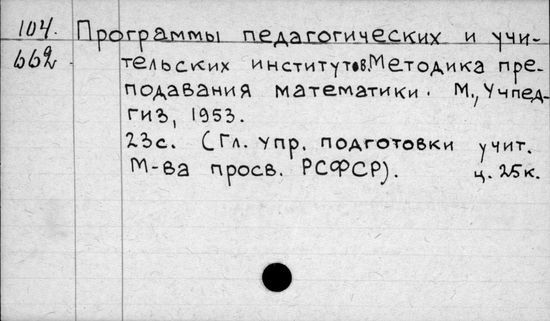 104. Программы педагогических и учи-
662. тельских институтов. Методика пре-
подавания математики. М., Учпед-
гиз, 1953.
23с. (Гл. упр. подготовки учит.
М-ва просв. РСФСР). ц. 25к.